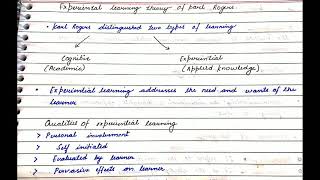 Experiential learning theory of Karl Rogers
• Karl Rogers distinguished two types of learning
Cognitive Experiential
(Academic) (Applied knowledge)
• Experiential learning addresses the need and wants of the
learner
Qualities of experiential learning
> Personal involvement
> Self initiated
> Evaluated by learner
> Pervasive effects on learner